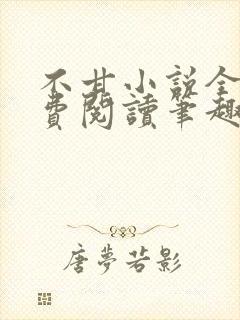 不甘小说全
费阅讀笔趣
唐梦若影